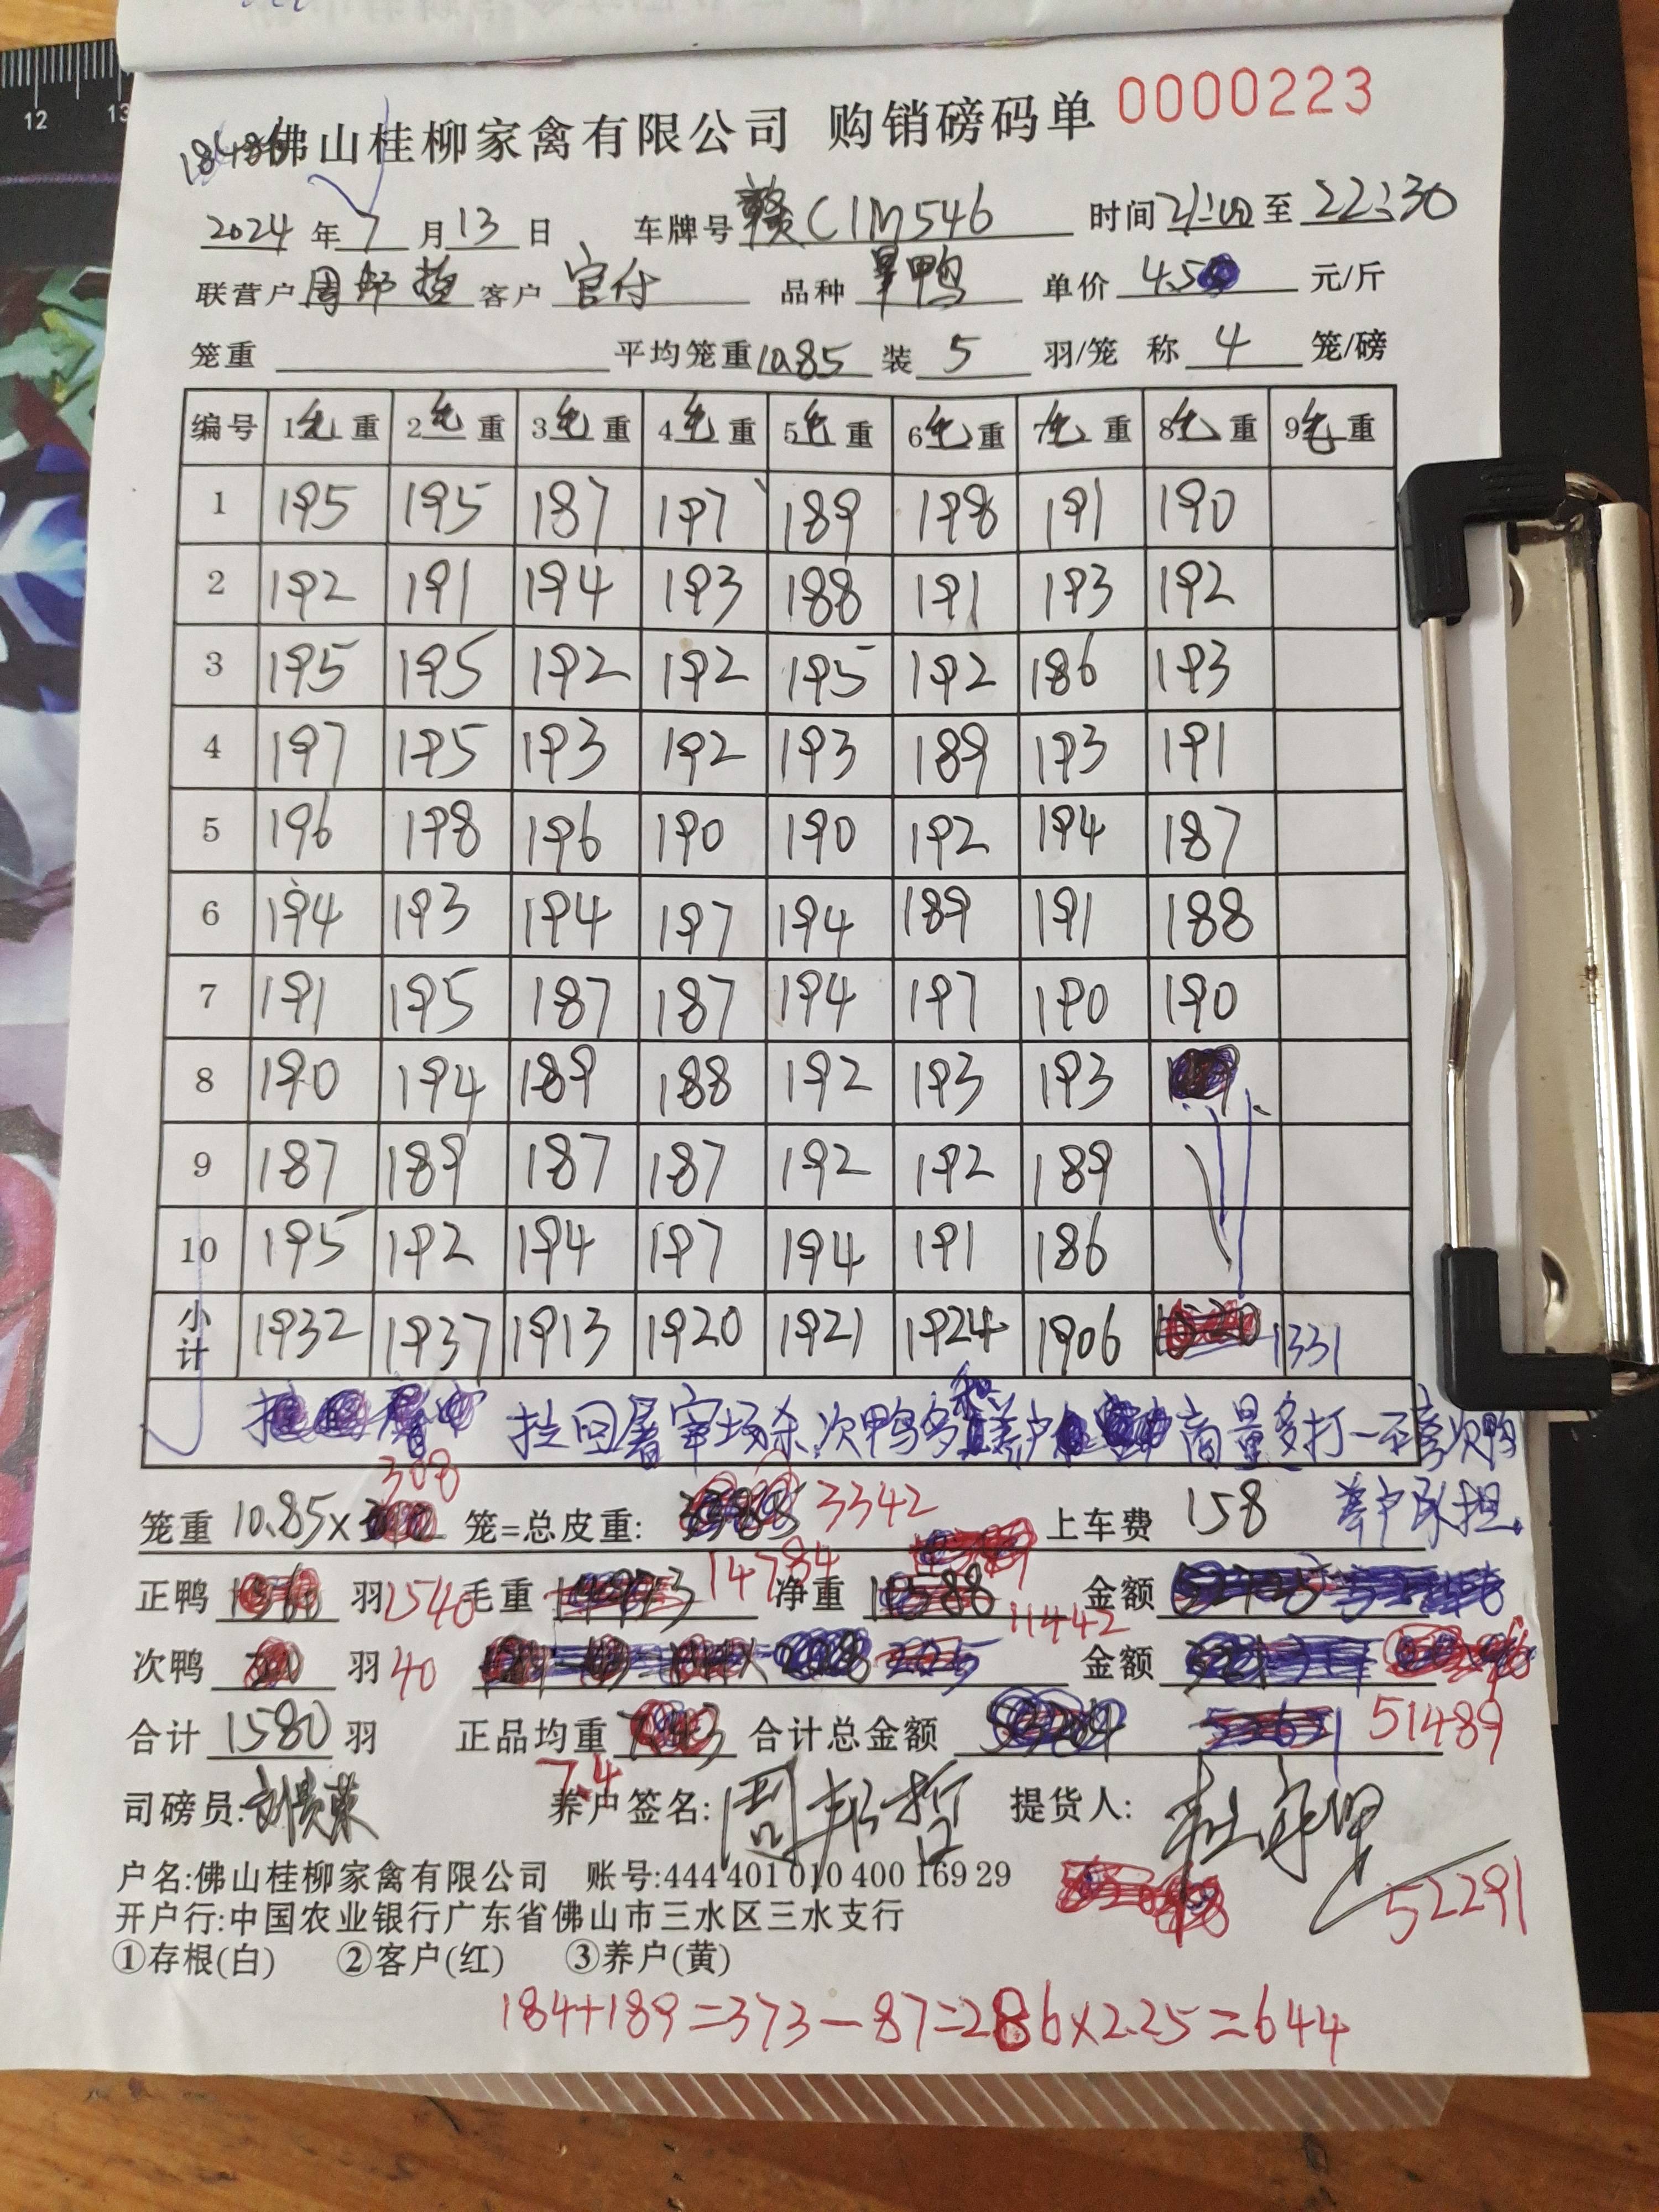 12 13
佛山桂柳家禽有限公司 购销磅码单 0000223
2024 年 7 月 13 日 车牌号 赣C1M546 时间 21:00 至 22:30
联营户 周邦哲 客户 官付 品种 旱鸭 单价 4.5 元/斤
笼重 平均笼重 10.85 装 5 羽/笼 称 4 笼/磅
编号 1毛重 2毛重 3毛重 4毛重 5毛重 6毛重 7毛重 8毛重 9毛重
1 195 195 187 197 189 198 191 190
2 192 191 194 193 188 191 193 192
3 195 195 192 192 195 192 186 193
4 197 195 193 192 193 189 193 191
5 196 198 196 190 190 192 194 187
6 194 193 194 197 194 189 191 188
7 191 195 187 187 194 197 190 190
8 190 194 189 188 192 193 193
9 187 189 187 187 192 192 189
10 195 192 194 197 194 191 186
小计 1932 1937 1913 1920 1921 1924 1906 1331
拉回屠宰场杀,次鸭多和养户商量多打一不享次鸭
养户承担.
笼重 10.85× 308 笼=总皮重: 3342 上车费 158
正鸭 羽 1540 毛重 14784 净重 11442 金额
次鸭 羽 40 金额
合计 1580 羽 正品均重 7.4 合计总金额 51489
司磅员: 刘贵荣 养户签名: 周邦哲 提货人:
户名:佛山桂柳家禽有限公司 账号:444 401 010 400 169 29
52291
开户行:中国农业银行广东省佛山市三水区三水支行
①存根(白) ②客户(红) ③养户(黄)
184+189=373-87=286×2.25=644